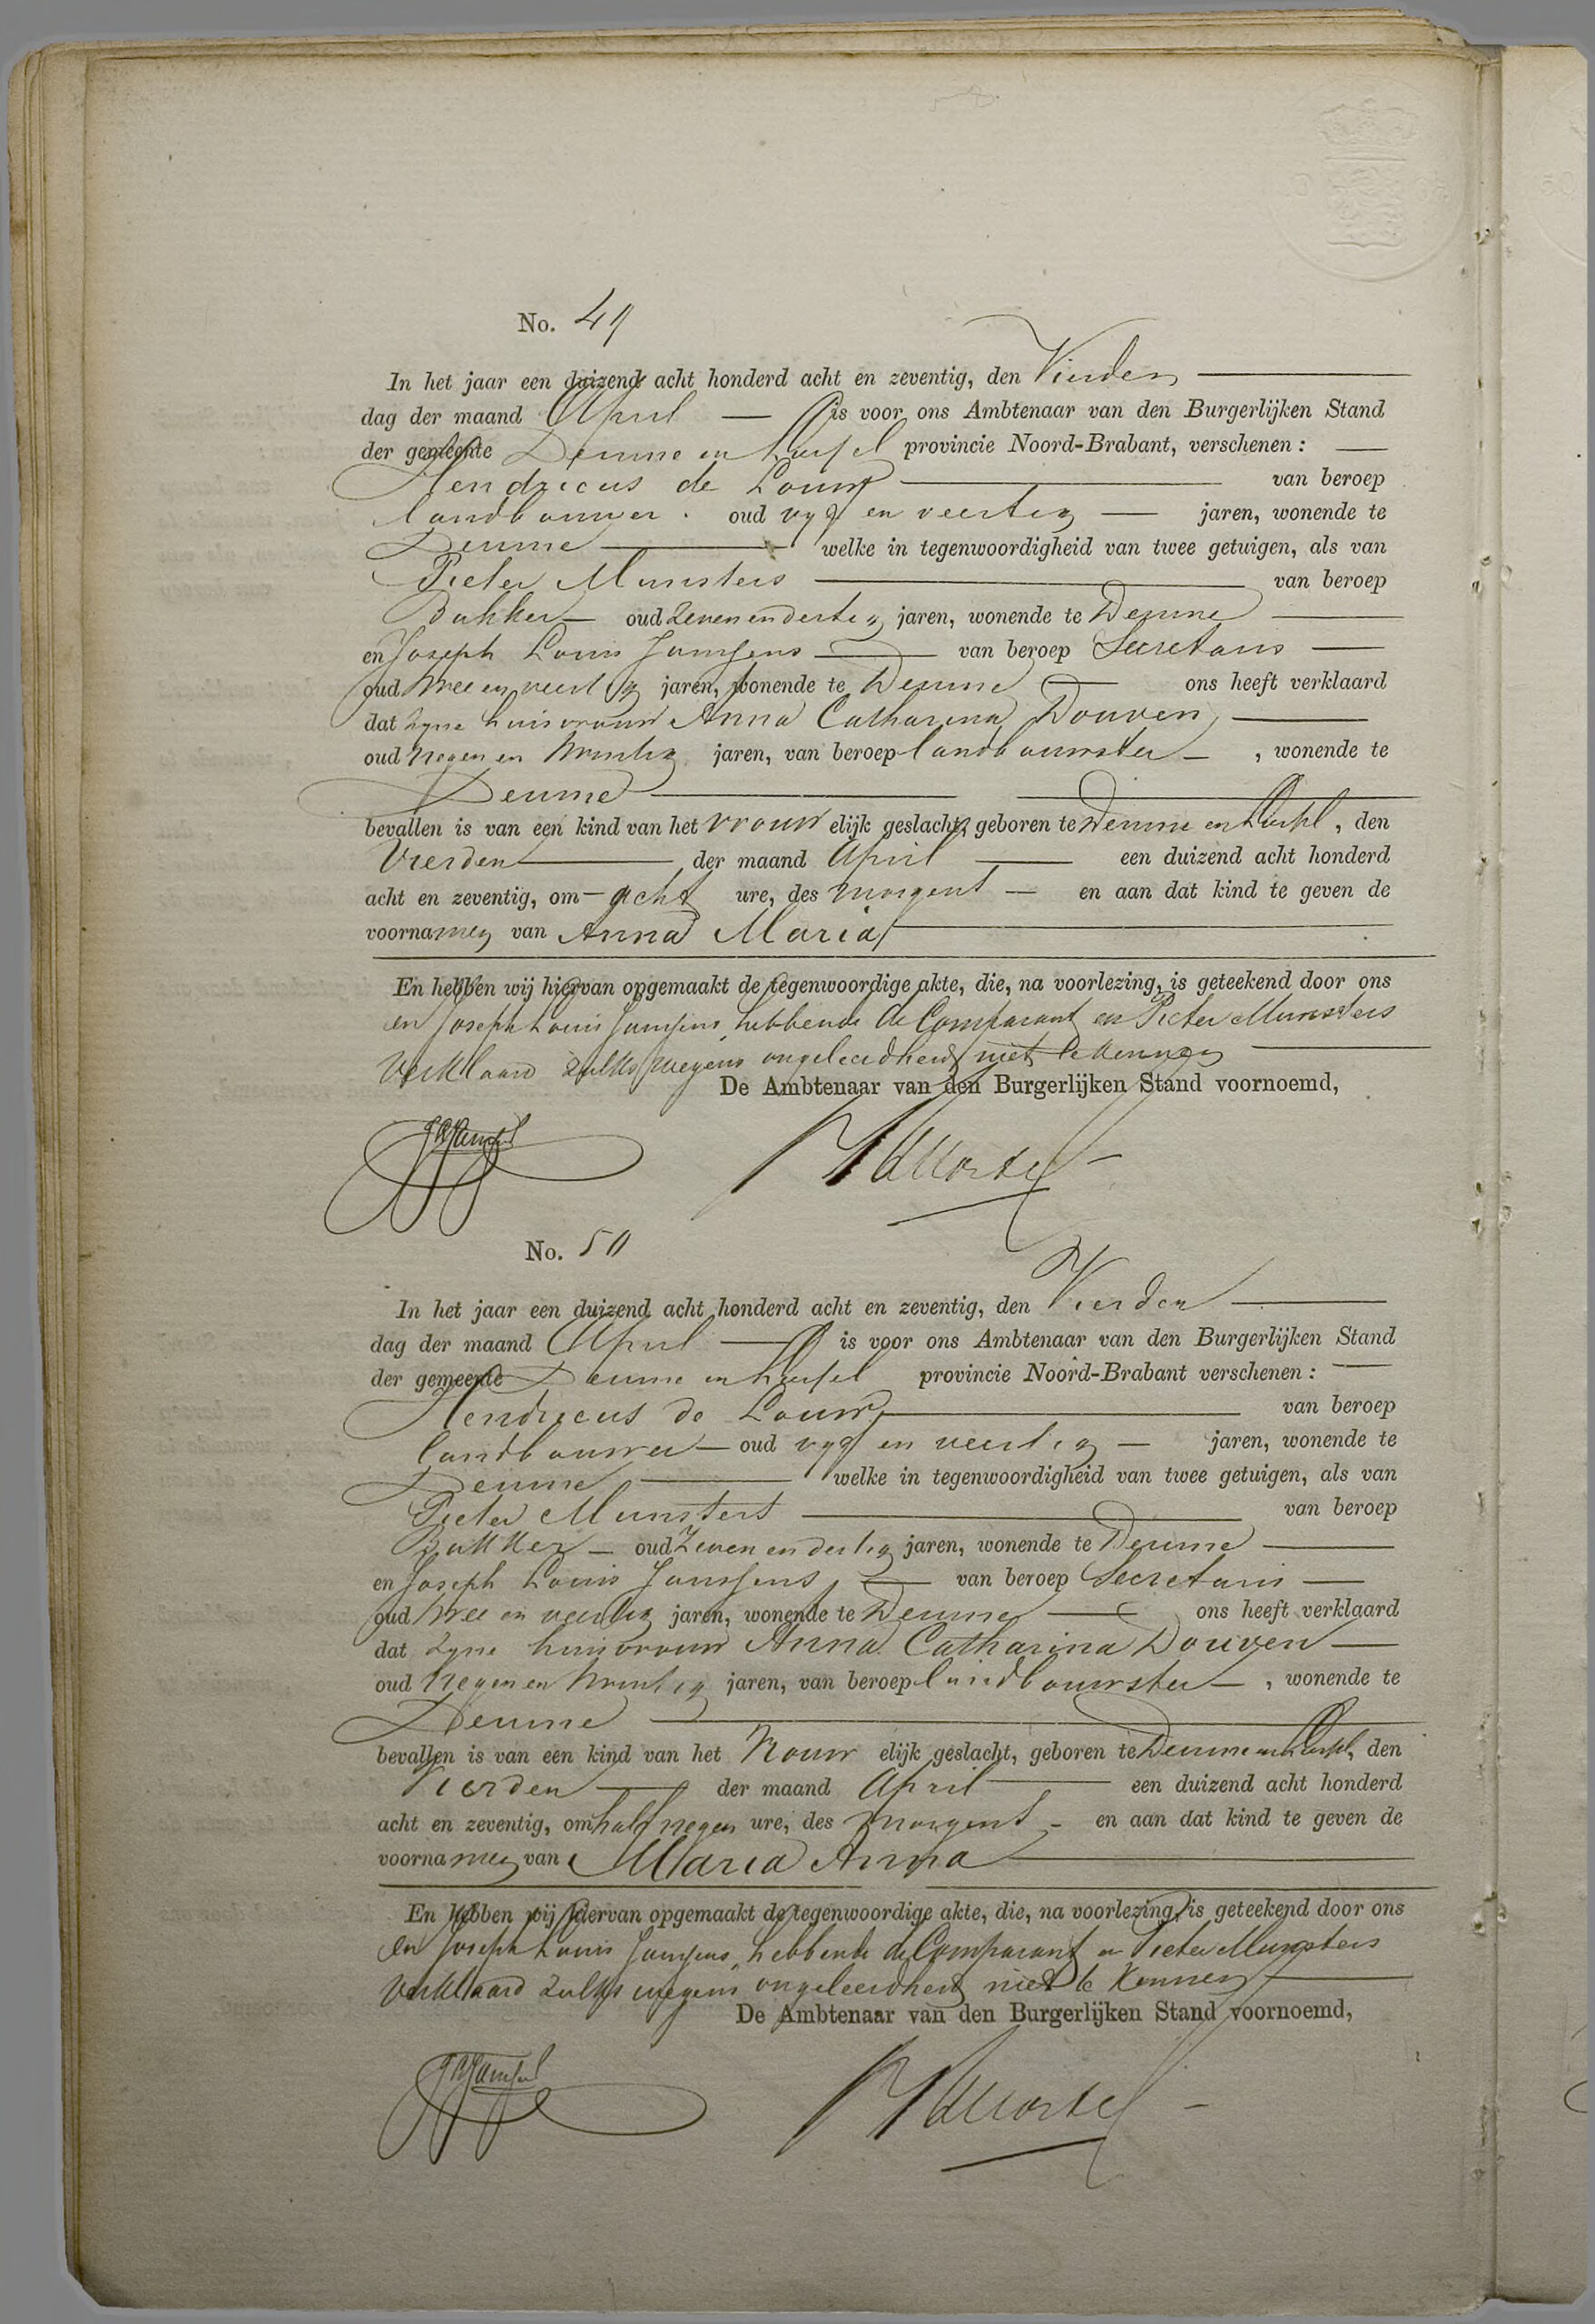 No. 49
In het jaar een duizend acht honderd acht en zeventig, den Vierden
dag der maand April is voor ons Ambtenaar van den Burgerlijken Stand
der gemeente Deurne en Liessel provincie Noord-Brabant, verschenen:
Hendricus de Louw van beroep
landbouwer oud vyf en veertig jaren, wonende te
Deurne welke in tegenwoordigheid van twee getuigen, als van
Pieter Munsters van beroep
Bakker oud zeven en dertig jaren, wonende te Deurne
en Joseph Louis Janssens van beroep Secretaris
oud twee en veertig jaren, wonende te Deurne ons heeft verklaard
dat zyne huisvrouw Anna Catharina Douven,
oud Negen en twintig jaren, van beroep landbouwster , wonende te
Deurne
bevallen is van een kind van het vrouw elijk geslacht, geboren te Deurne en Liessel, den
Vierden der maand April een duizend acht honderd
acht en zeventig, om acht ure, des morgens en aan dat kind te geven de
voornamen van Anna Maria
En hebben wij hiervan opgemaakt de tegenwoordige akte, die, na voorlezing, is geteekend door ons
en Joseph Louis Janssens, hebbende de Comparant en Pieter Munsters
verklaard zulks wegens ongeleerdheid niet te kennen
De Ambtenaar van den Burgerlijken Stand voornoemd,
No. 50
In het jaar een duizend acht honderd acht en zeventig, den Vierden
dag der maand April is voor ons Ambtenaar van den Burgerlijken Stand
der gemeente Deurne en Liessel provincie Noord-Brabant verschenen:
Hendricus de Louw van beroep
landbouwer oud vyf en veertig jaren, wonende te
Deurne welke in tegenwoordigheid van twee getuigen, als van
Pieter Munsters van beroep
Bakker oud Zeven en dertig jaren, wonende te Deurne
en Joseph Louis Janssens van beroep Secretaris
oud twee en veertig jaren, wonende te Deurne ons heeft verklaard
dat zyne huisvrouw Anna Catharina Douven
oud Negen en twintig jaren, van beroep landbouwster , wonende te
Deurne
bevallen is van een kind van het Vrouw elijk geslacht, geboren te Deurne en Liessel, den
Vierden der maand April een duizend acht honderd
acht en zeventig, om half negen ure, des morgens en aan dat kind te geven de
voornamen van Maria Anna
En hebben wij hiervan opgemaakt de tegenwoordige akte, die, na voorlezing, is geteekend door ons
en Joseph Louis Janssens, hebbende de Comparant en Pieter Munsters
verklaard zulks wegens ongeleerdheid niet te kennen
De Ambtenaar van den Burgerlijken Stand voornoemd,